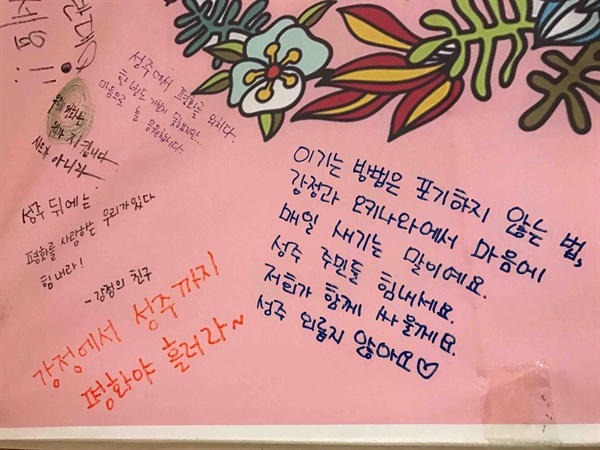 세요!!
성주에서 평화를 외치다.
한 번도 가보지 못했지만...
마음으로 늘 응원합니다.
우리 나라는
우리가 지킵니다
사드 아니라
성주 뒤에는
평화를 사랑하는 우리가 있다
힘내라!
-강정의 친구
강정에서 성주까지
평화야 흘러라~
이기는 방법은 포기하지 않는 법,
강정과 오키나와에서 마음에
매일 새기는 말이에요.
성주 주민들 힘내세요.
저희가 함께 싸울게요.
성주 외롭지 않아요♡